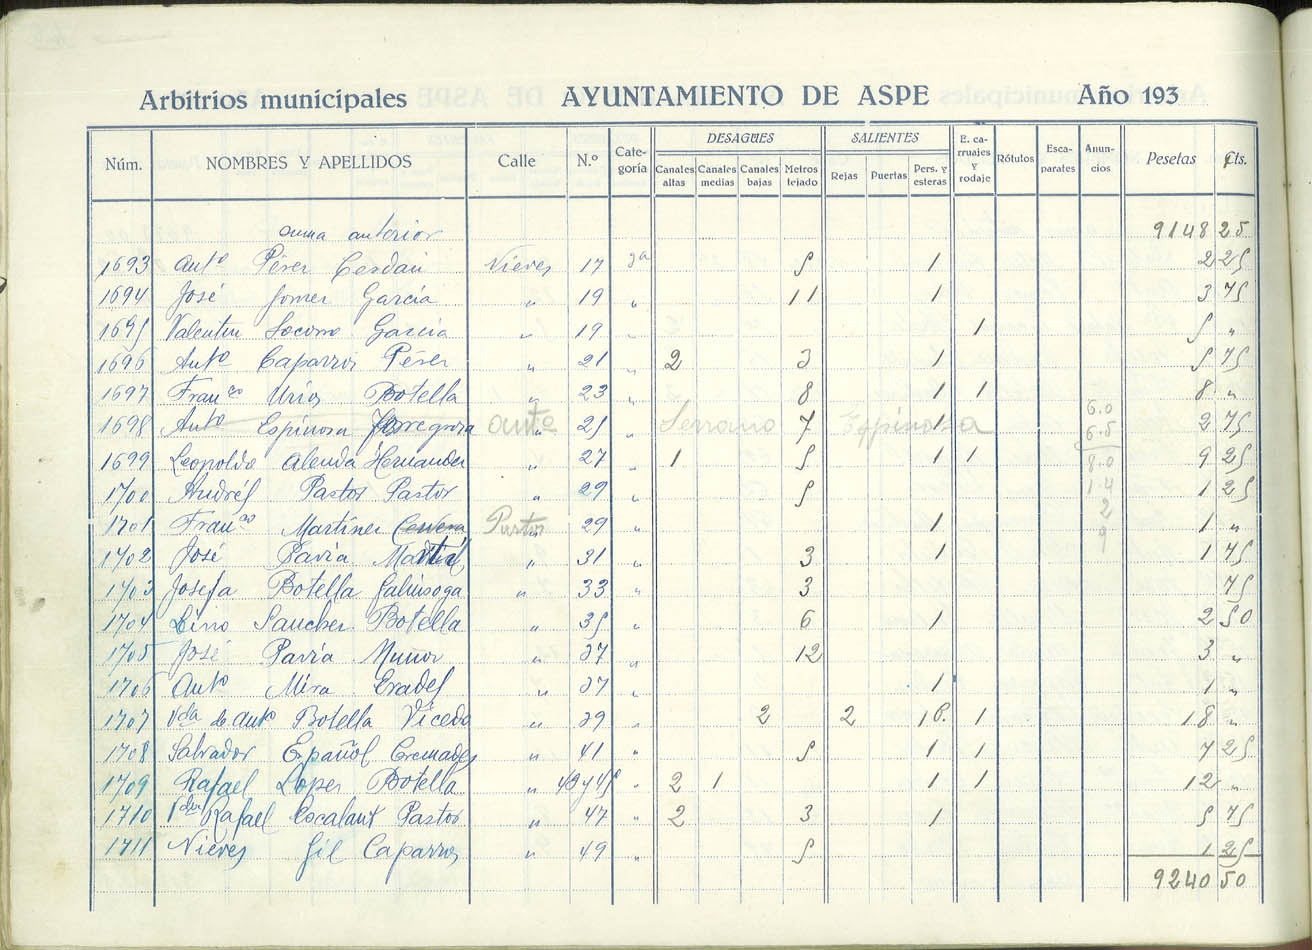 Arbitrios municipales AYUNTAMIENTO DE ASPE Año 193
DESAGÜES SALIENTES
Núm. NOMBRES Y APELLIDOS Calle N.º Categoría Canales altas Canales medias Canales bajas Metros tejado Rejas Puertas Pers. y esteras E. carruajes y rodaje Rótulos Escaparates Anuncios Pesetas Cts.
suma anterior 9148 25
1693 Antº Pérez Cerdán Nieves 17 3ª 5 1 2 25
1694 José Gomez García " 19 " 11 1 3 75
1695 Valentin Socorro García " 19 " 1 5 "
1696 Antº Caparros Pérez " 21 " 2 3 1 5 75
1697 Franco Urios Botella " 23 " 8 1 1 8 "
1698 Antº Espinosa Antº " 25 " Serrano 7 Espinosa 1 2 75
1699 Leopoldo Alenda Hernandez " 27 " 1 5 1 1 9 25
1700 Andrés Pastor Pastor " 29 " 5 1 25
1701 Franco Martínez Cervera Pastor " 29 " 1 1 "
1702 José Pavía Martí " 31 " 3 1 1 75
1703 Josefa Botella Galinsoga " 33 " 3 75
1704 Lino Sanchez Botella " 35 " 6 1 2 50
1705 José Pavía Muñoz " 37 " 12 3 "
1706 Antº Mira Erades " 37 " 1 1 "
1707 Vda de Antº Botella Vicedo " 39 " 2 2 1 P. 1 18 "
1708 Salvador Español Cremades " 41 " 5 1 1 7 25
1709 Rafael López Botella " 43 y 45 " 2 1 1 1 12 "
1710 Vda Rafael Escalant Pastor " 47 " 2 3 1 5 75
1711 Nieves Gil Caparros " 49 " 5 1 25
9240 50